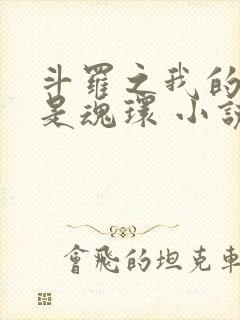 斗羅之我的
是魂環 小說
會飛的坦克車